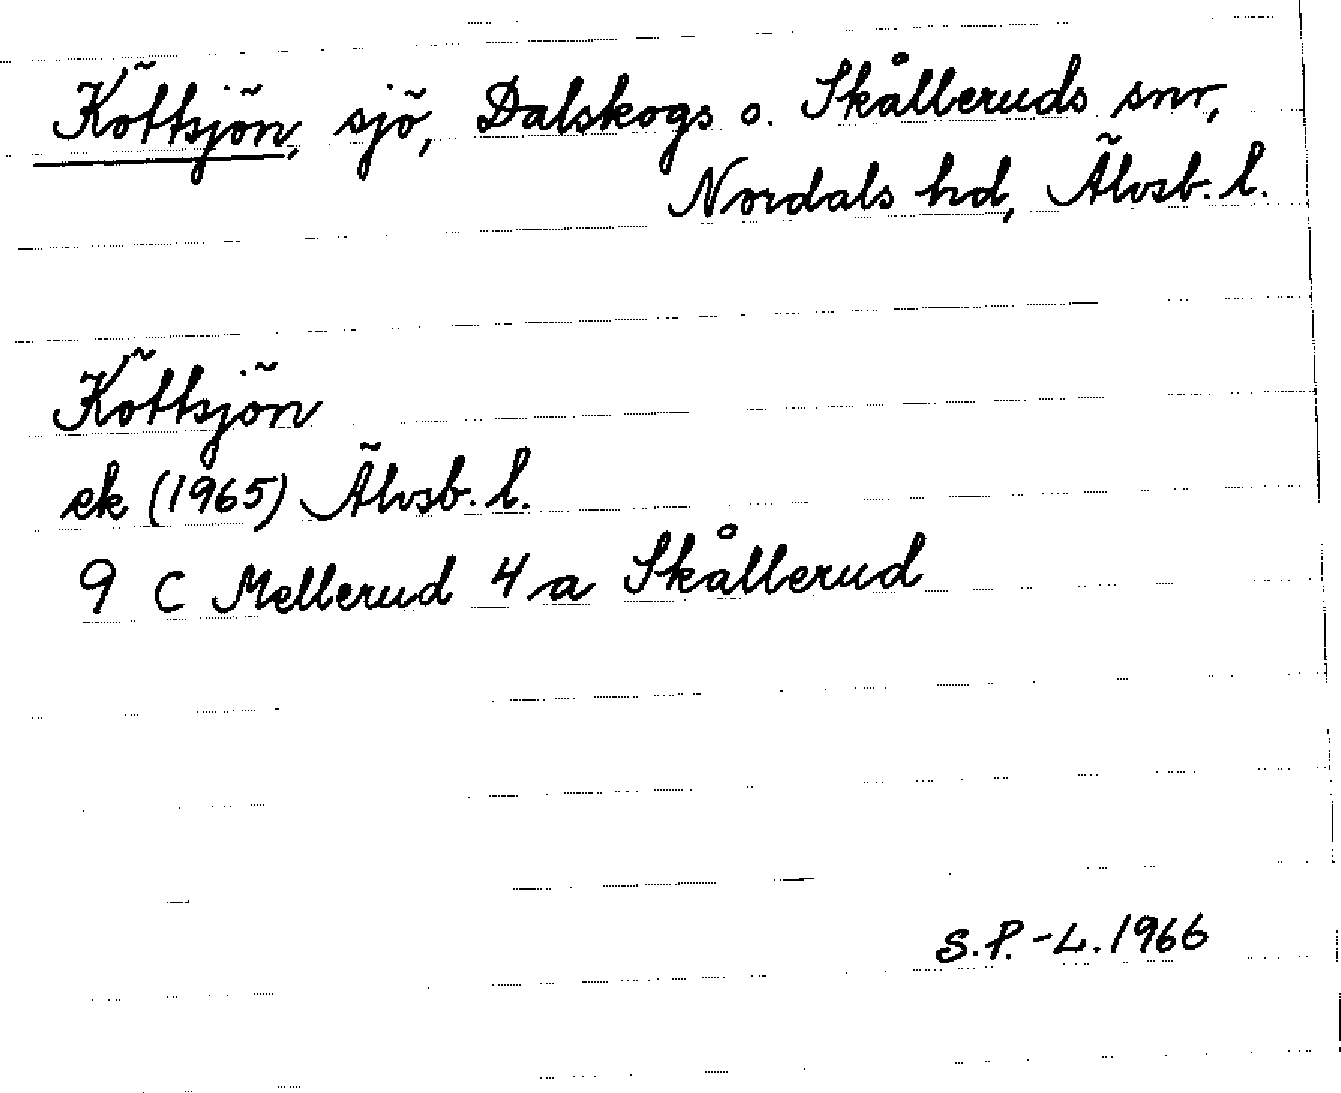 Köttsjön, sjö, Dalskogs o. Skålleruds snr,
Nordals hd, Älvsb. l.
Köttsjön
ek (1965) Älvsb. l.
9 C Mellerud 4 a Skållerud
S.P.-L. 1966